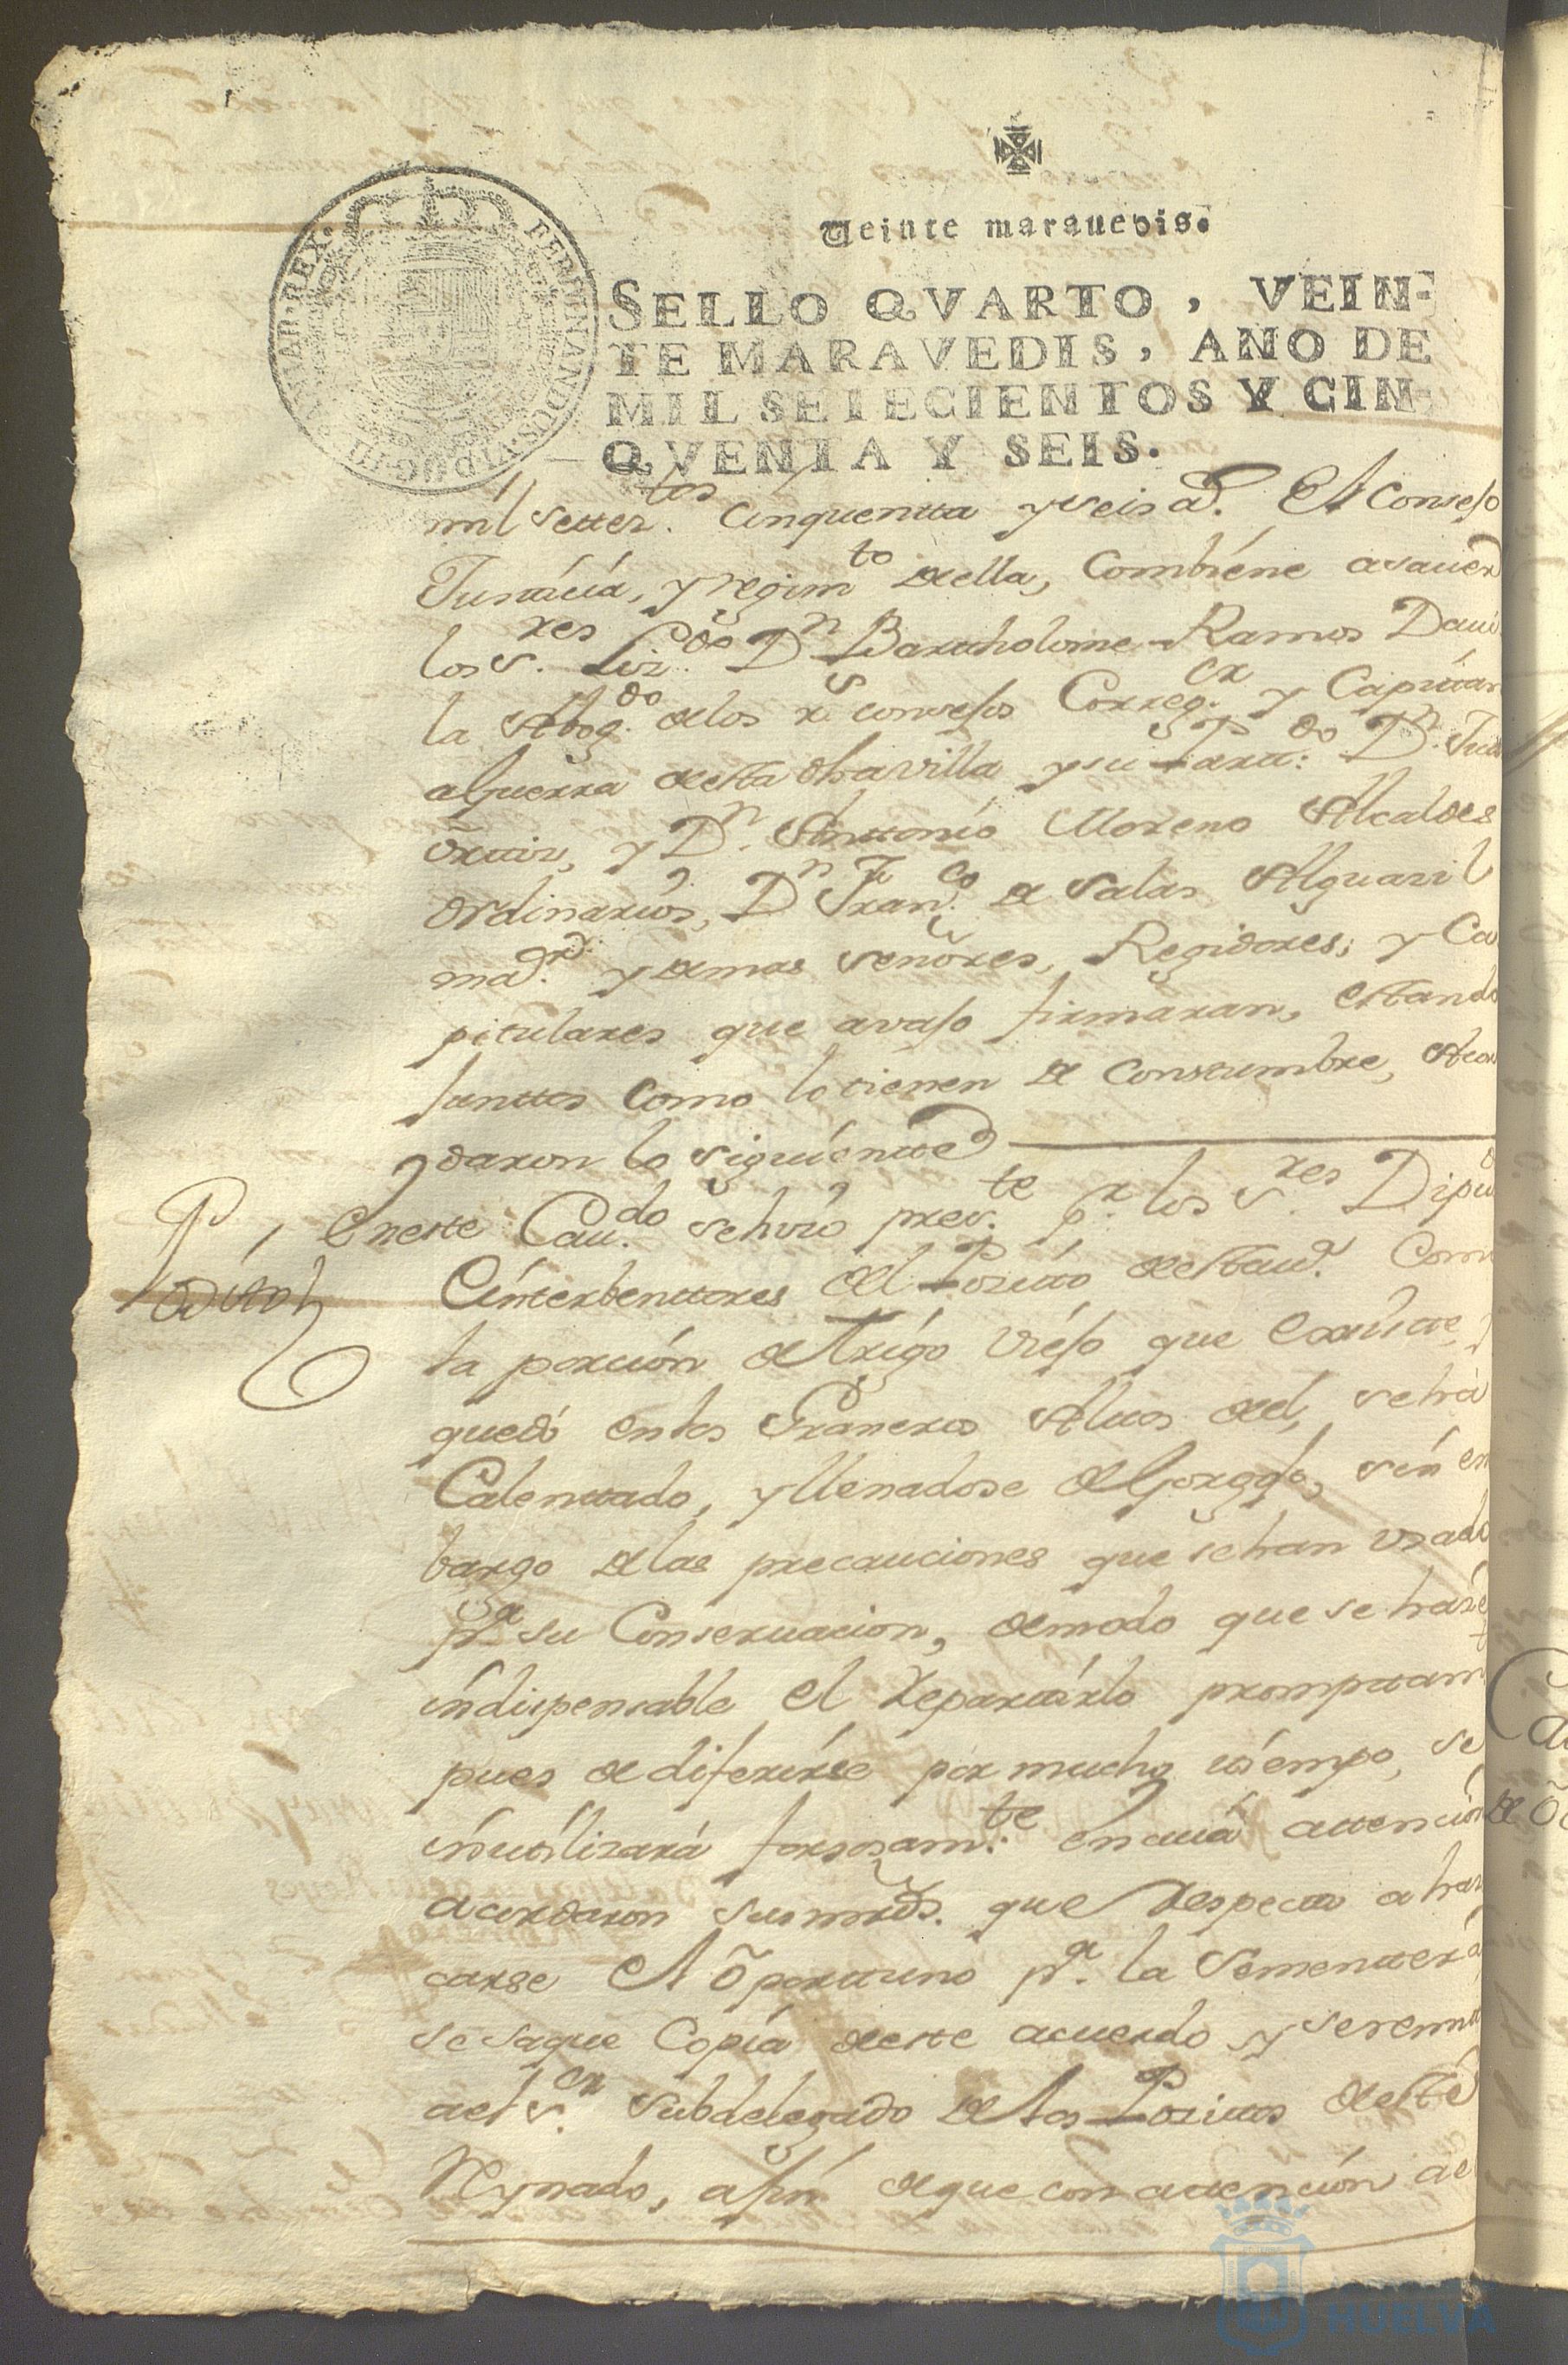 Veinte maravedis.
FERDINANDUS·VI·D·G· HISPANIAR·REX·
SELLO QVARTO, VEIN-
TE MARAVEDIS, AÑO DE
MIL SETECIENTOS Y CIN-
QVENTA Y SEIS.
mil settez.tos cinquentta y seis a.s El Consejo
Justicia, y regim.to de ella, combiéne a saver
los s.res Liz.do D.n Bartholome Ramos Davi
la Abog.do de los r.s consejos Correg.or y Capitan
a Guerra de esta dha villa y su Parti.do D.n Juan
Ortiz, y D.n Anttonio Moreno Alcaldes
ordinarios, D.n Fran.co de Salas Alguazil
ma.or y demas señores, Regidores, y Ca
pitulares que avajo firmaran, estando
Junttos como lo tienen de constumbre, Acor
daron lo siguiente
En este Cav.do se hizo pres.te p.r los s.res Dipu
Pósito
e interbenttores del Pozitto de esta v.a Como
la porción de trigo viéjo que existe, y
quedó en los Graneros Altos de el, se há
Calenttado, y llenadose de Gorgojo, sin em
bargo de las precauciones que se han usado
p.a su Conservacion, de modo que se haze
indispensable el repartirlo promptam.te
pues de diferirse por mucho tiémpo, se
inutilizará forsosam.te en cuia attención
acordaron sus mrds. que respecto a har
carse el oporttuno p.a la Sementtera
se saque Copia de este acuerdo y se remita
al s.or Subdelegado de los Pozittos de este
Reynado, a fin de que con attención al
HUELVA